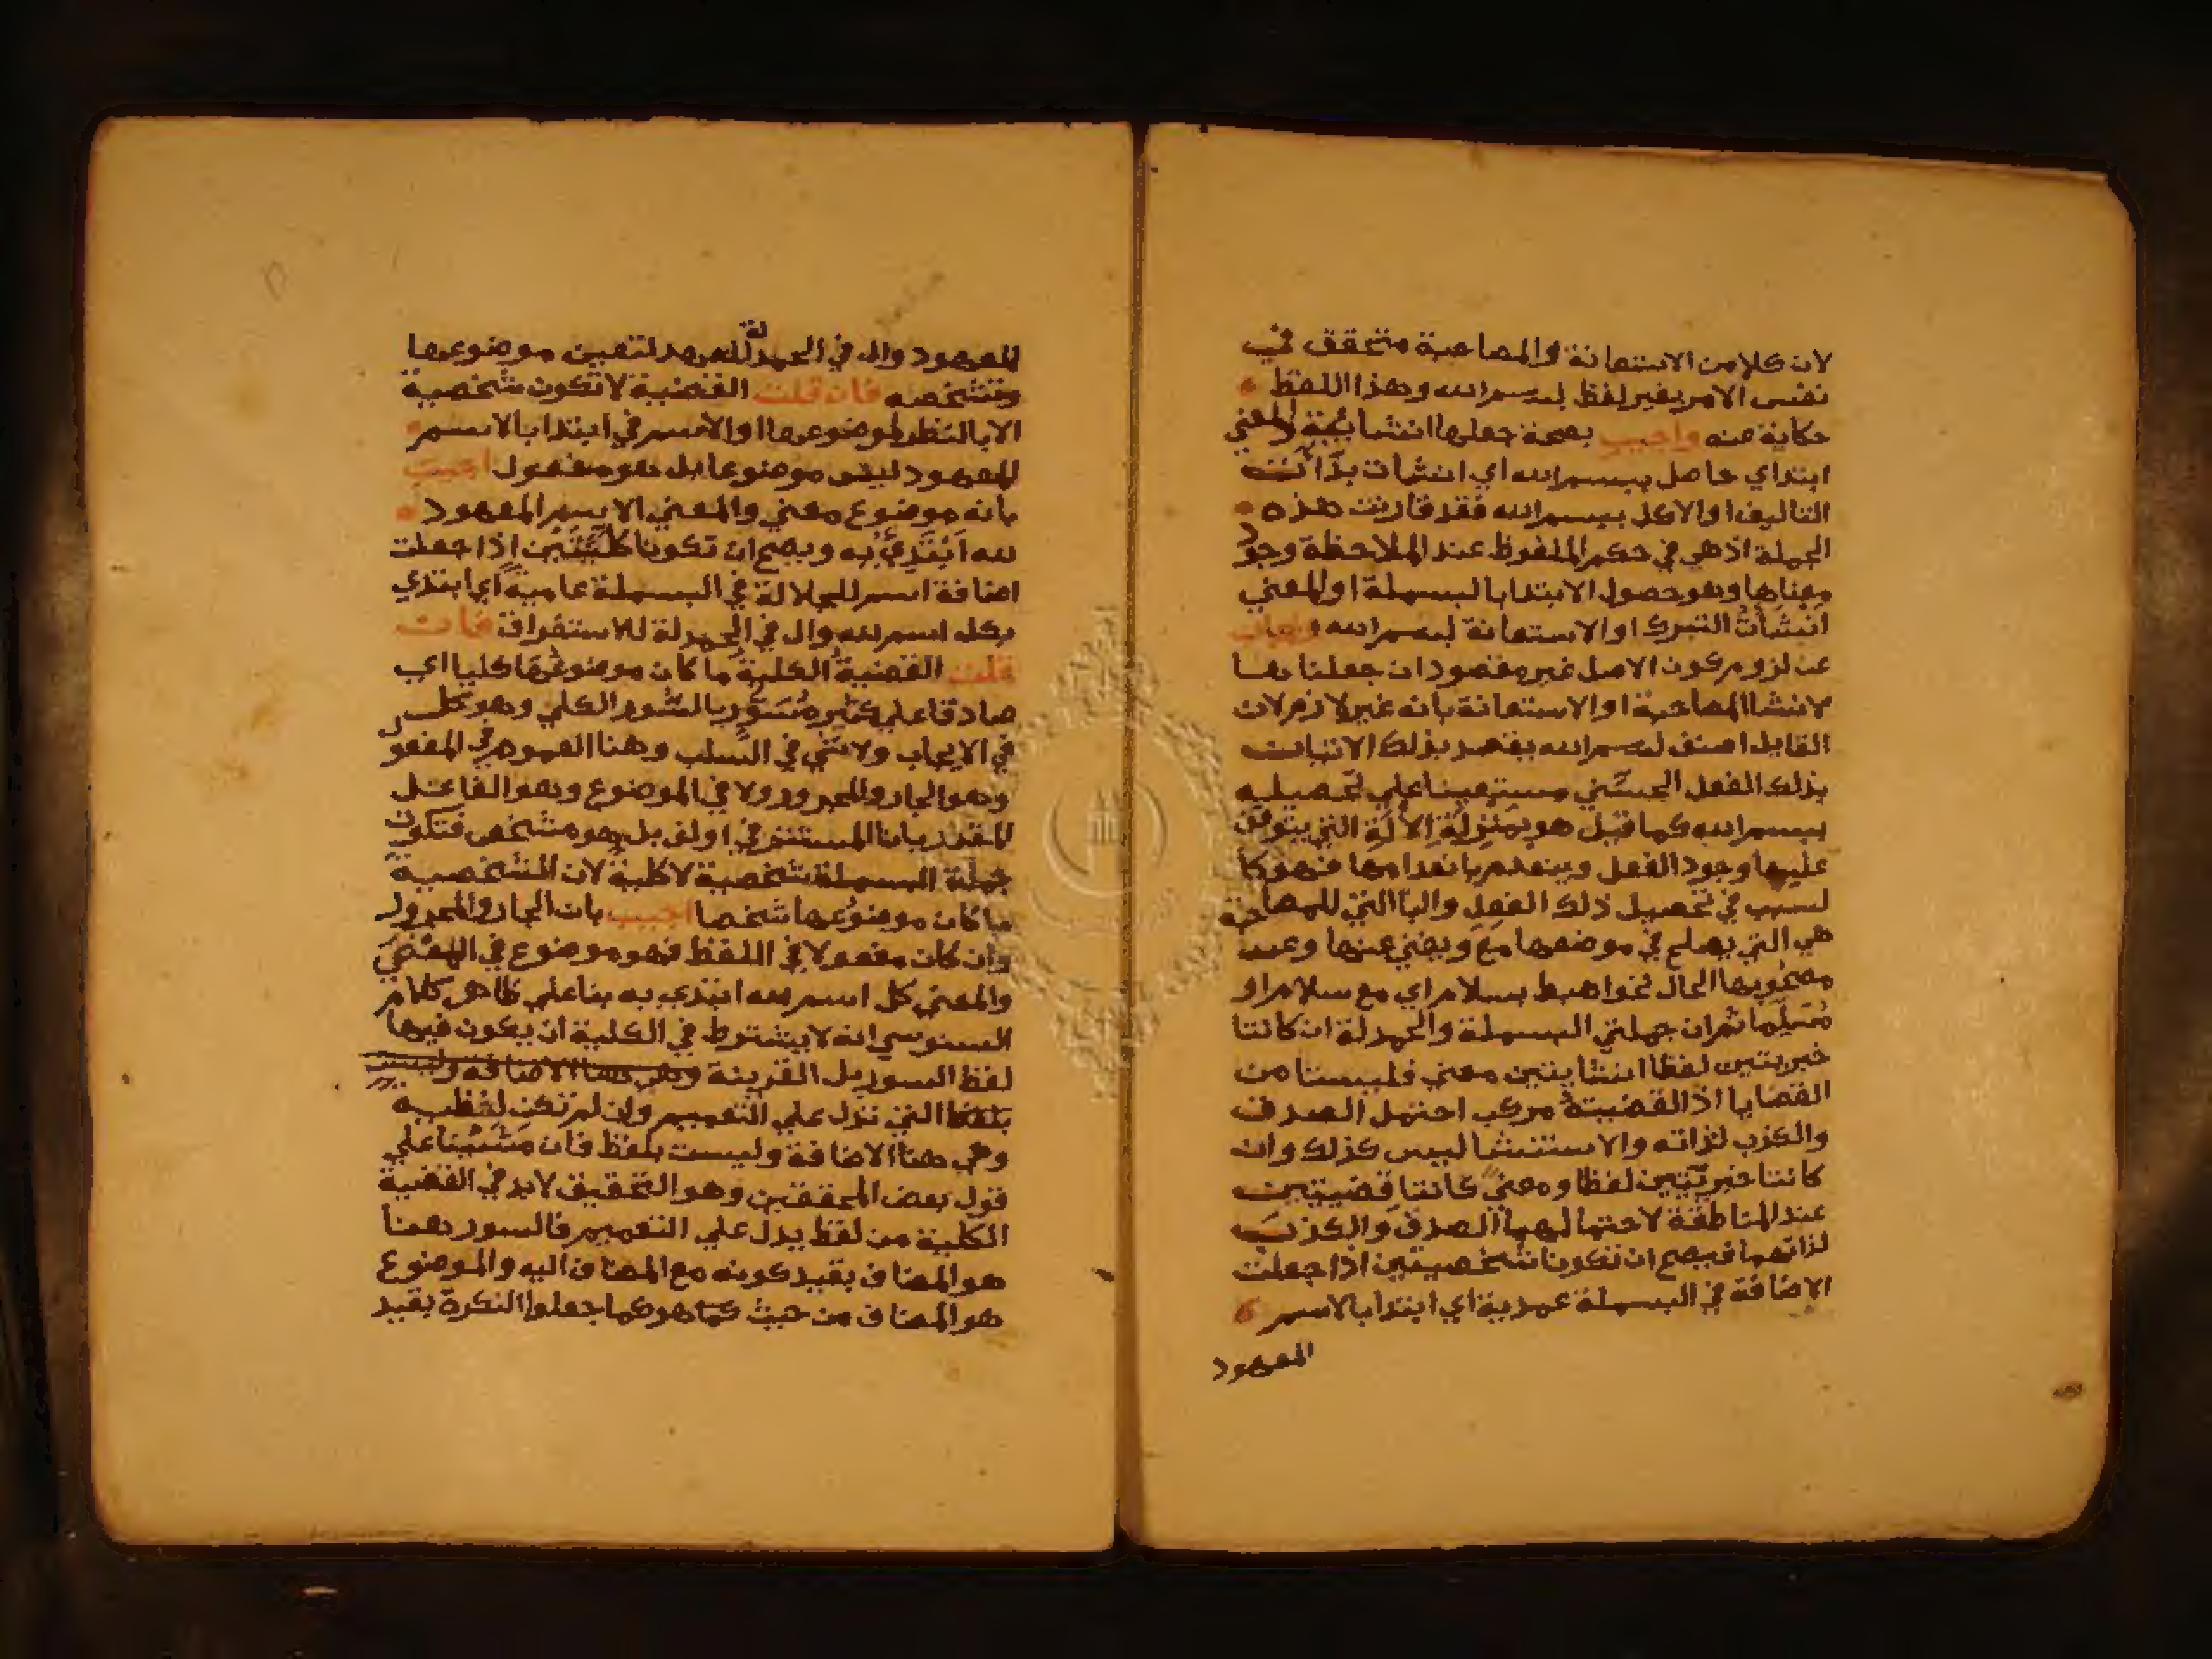 لان كلا من الاستعانة والمصاحبة متحقق في
نفس الامر بغير لفظ بسم الله وهذا اللفظ
حكاية عنه واجيب بصحة جعلها انشائية والمعني
ابتداي حاصل ببسم الله اي انشات بدأت
التاليف او الاكل ببسم الله فقد قارنت هذه
الجملة اذ هي في حكم الملفوظ عند الملاحظة وجود
معناها وهو حصول الابتدا بالبسملة او المعني
انشأت التبرك او الاستعانة ببسم الله ويجاب
عن لزوم كون الاصل غير مقصود ان جعلناها
لانشا المصاحبة او الاستعانة بانه غير لازم لان
القايل اصنف بسم الله يقصد بذلك الاتيان
بذلك الفعل الحسّي مستعينا علي تحصيله
ببسم الله كما قيل هو بمنزلة الآلة التي يتوقف
عليها وجود الفعل وينعدم بانعدامها فهو كا
لسبب في تحصيل ذلك الفعل والبا التي للمصاحبة
هي التي يصلح في موضعها مع ويغني عنها وعن
مصحوبها الحال نحو اهبط بسلام اي مع سلام او
مسلما ثم ان جملتي البسملة والحمدلة ان كانتا
خبريتين لفظا انشايتين معني فليستا من
القضايا اذ القضية مركب احتمل الصدق
والكذب لذاته والانشا ليس كذلك وان
كانتا خبريتين لفظا ومعني كانتا قضيتين
عند المناطقة لاحتمالهما الصدق والكذب
لذاتهما فيصح ان تكونا شخصيتين اذا جعلت
الاضافة في البسملة عهدية اي ابتدا بالاسم
المعهود
المعهود وال في الحمدلة للعهد لتعين موضوعها
وتشخصه فان قلت القضية لا تكون شخصية
الا بالنظر لموضوعها والاسم في ابتدا بالاسم
المعهود ليس موضوعا بل هو مفعول اجيب
بانه موضوع معني والمعني الاسم المعهود
لله ابتدئ به ويصح ان تكونا كليتين اذا جعلت
اضافة اسم للجلالة في البسملة عامية اي ابتدي
بكل اسم لله وال في الحمدلة للاستغراق فان
قلت القضية الكلية ما كان موضوعها كليا اي
صادقا علي كثير مسور بالسور الكلي وهو كل
في الايجاب ولا شي في السلب وهنا العموم في المفعول
وهو الجار والمجرور ولا في الموضوع وهو الفاعل
المقدر بانا المستتر في اولف بل هو مشخص فتكون
جملة البسملة شخصية لا كلية لان الشخصية
ما كان موضوعها شخصا اجيب بان الجار والمجرور
وان كان مفعولا في اللفظ فهو موضوع في المعني
والمعني كل اسم لله ابتدي به بنا علي ظاهر كلام
السنوسي انه لا يشترط في الكلية ان يكون فيها
لفظ السور بل القرينة وهي هنا الاضافة وليست
بلفظ التي تدل علي التعميم وان لم تكن لفظية
وهي هنا الاضافة وليست بلفظ فان مشينا علي
قول بعض المحققين وهو التحقيق لابد في القضية
الكلية من لفظ يدل علي التعميم فالسور هنا
هو المضاف بقيد كونه مع المضاف اليه والموضوع
هو المضاف من حيث هو كما جعلوا النكرة بقيد